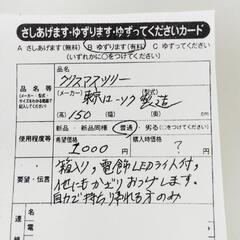 さしあげます・ゆずります・ゆずってくださいカード
A さしあげます(無料) B ゆずります(有料) C ゆずってください
(いずれかに○をつけてください)
品名等
(メーカー・型式・サイズをわかる範囲で記入してください)
(品名)
クリスマスツリー
(メーカー・型式)
東京ローソク製造
(高さ) 150 (幅) (奥行)
使用程度等
新品 新品同様 普通 劣る(○をつけてください)
(希望価格) (購入時価格)
1000円 ? 円
要望・伝言
箱入り,電飾LEDライト付,
他にもかざりおつけします。
自力で持ち帰れる方のみ
連